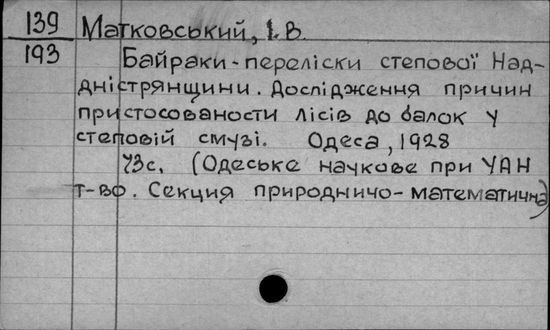 139 Матковський, І. В.
193 Байраки-переліски степової Над-
дністрянщини. Дослідження причин
пристосованости лісів до балок у
степовій смузі. Одеса, 1928
43с. (Одеське наукове при УАН
т-во. Секция природничо-математична)